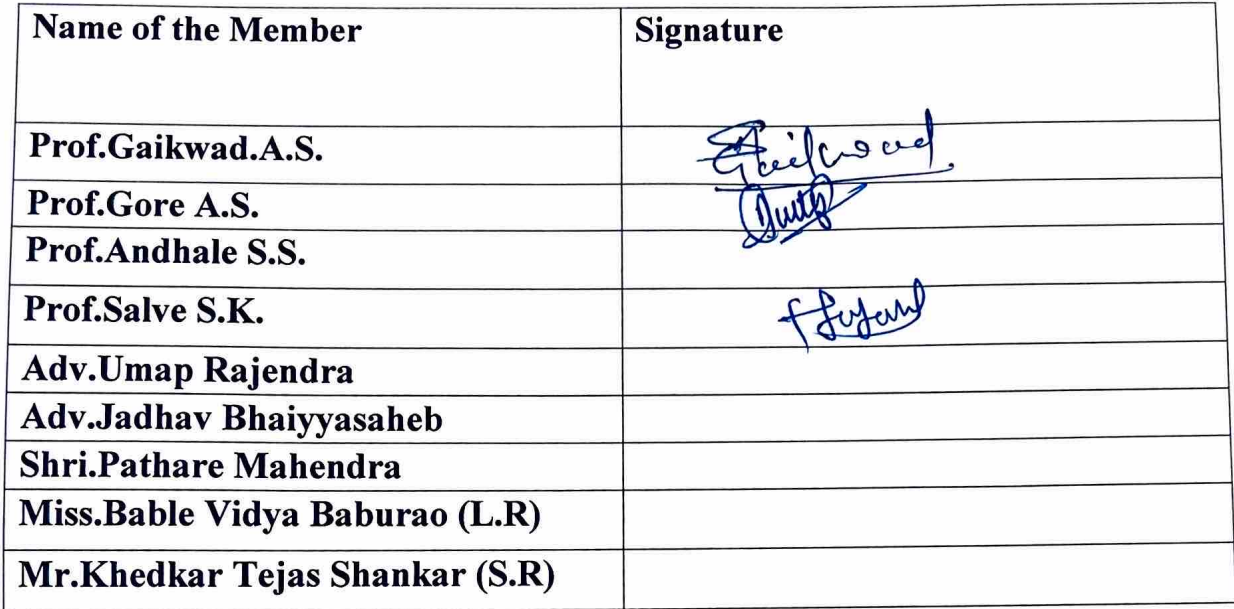 Name of the Member Signature
Prof.Gaikwad.A.S. Gaikwad
Prof.Gore A.S.
Prof.Andhale S.S.
Prof.Salve S.K.
Adv.Umap Rajendra
Adv.Jadhav Bhaiyyasaheb
Shri.Pathare Mahendra
Miss.Bable Vidya Baburao (L.R)
Mr.Khedkar Tejas Shankar (S.R)